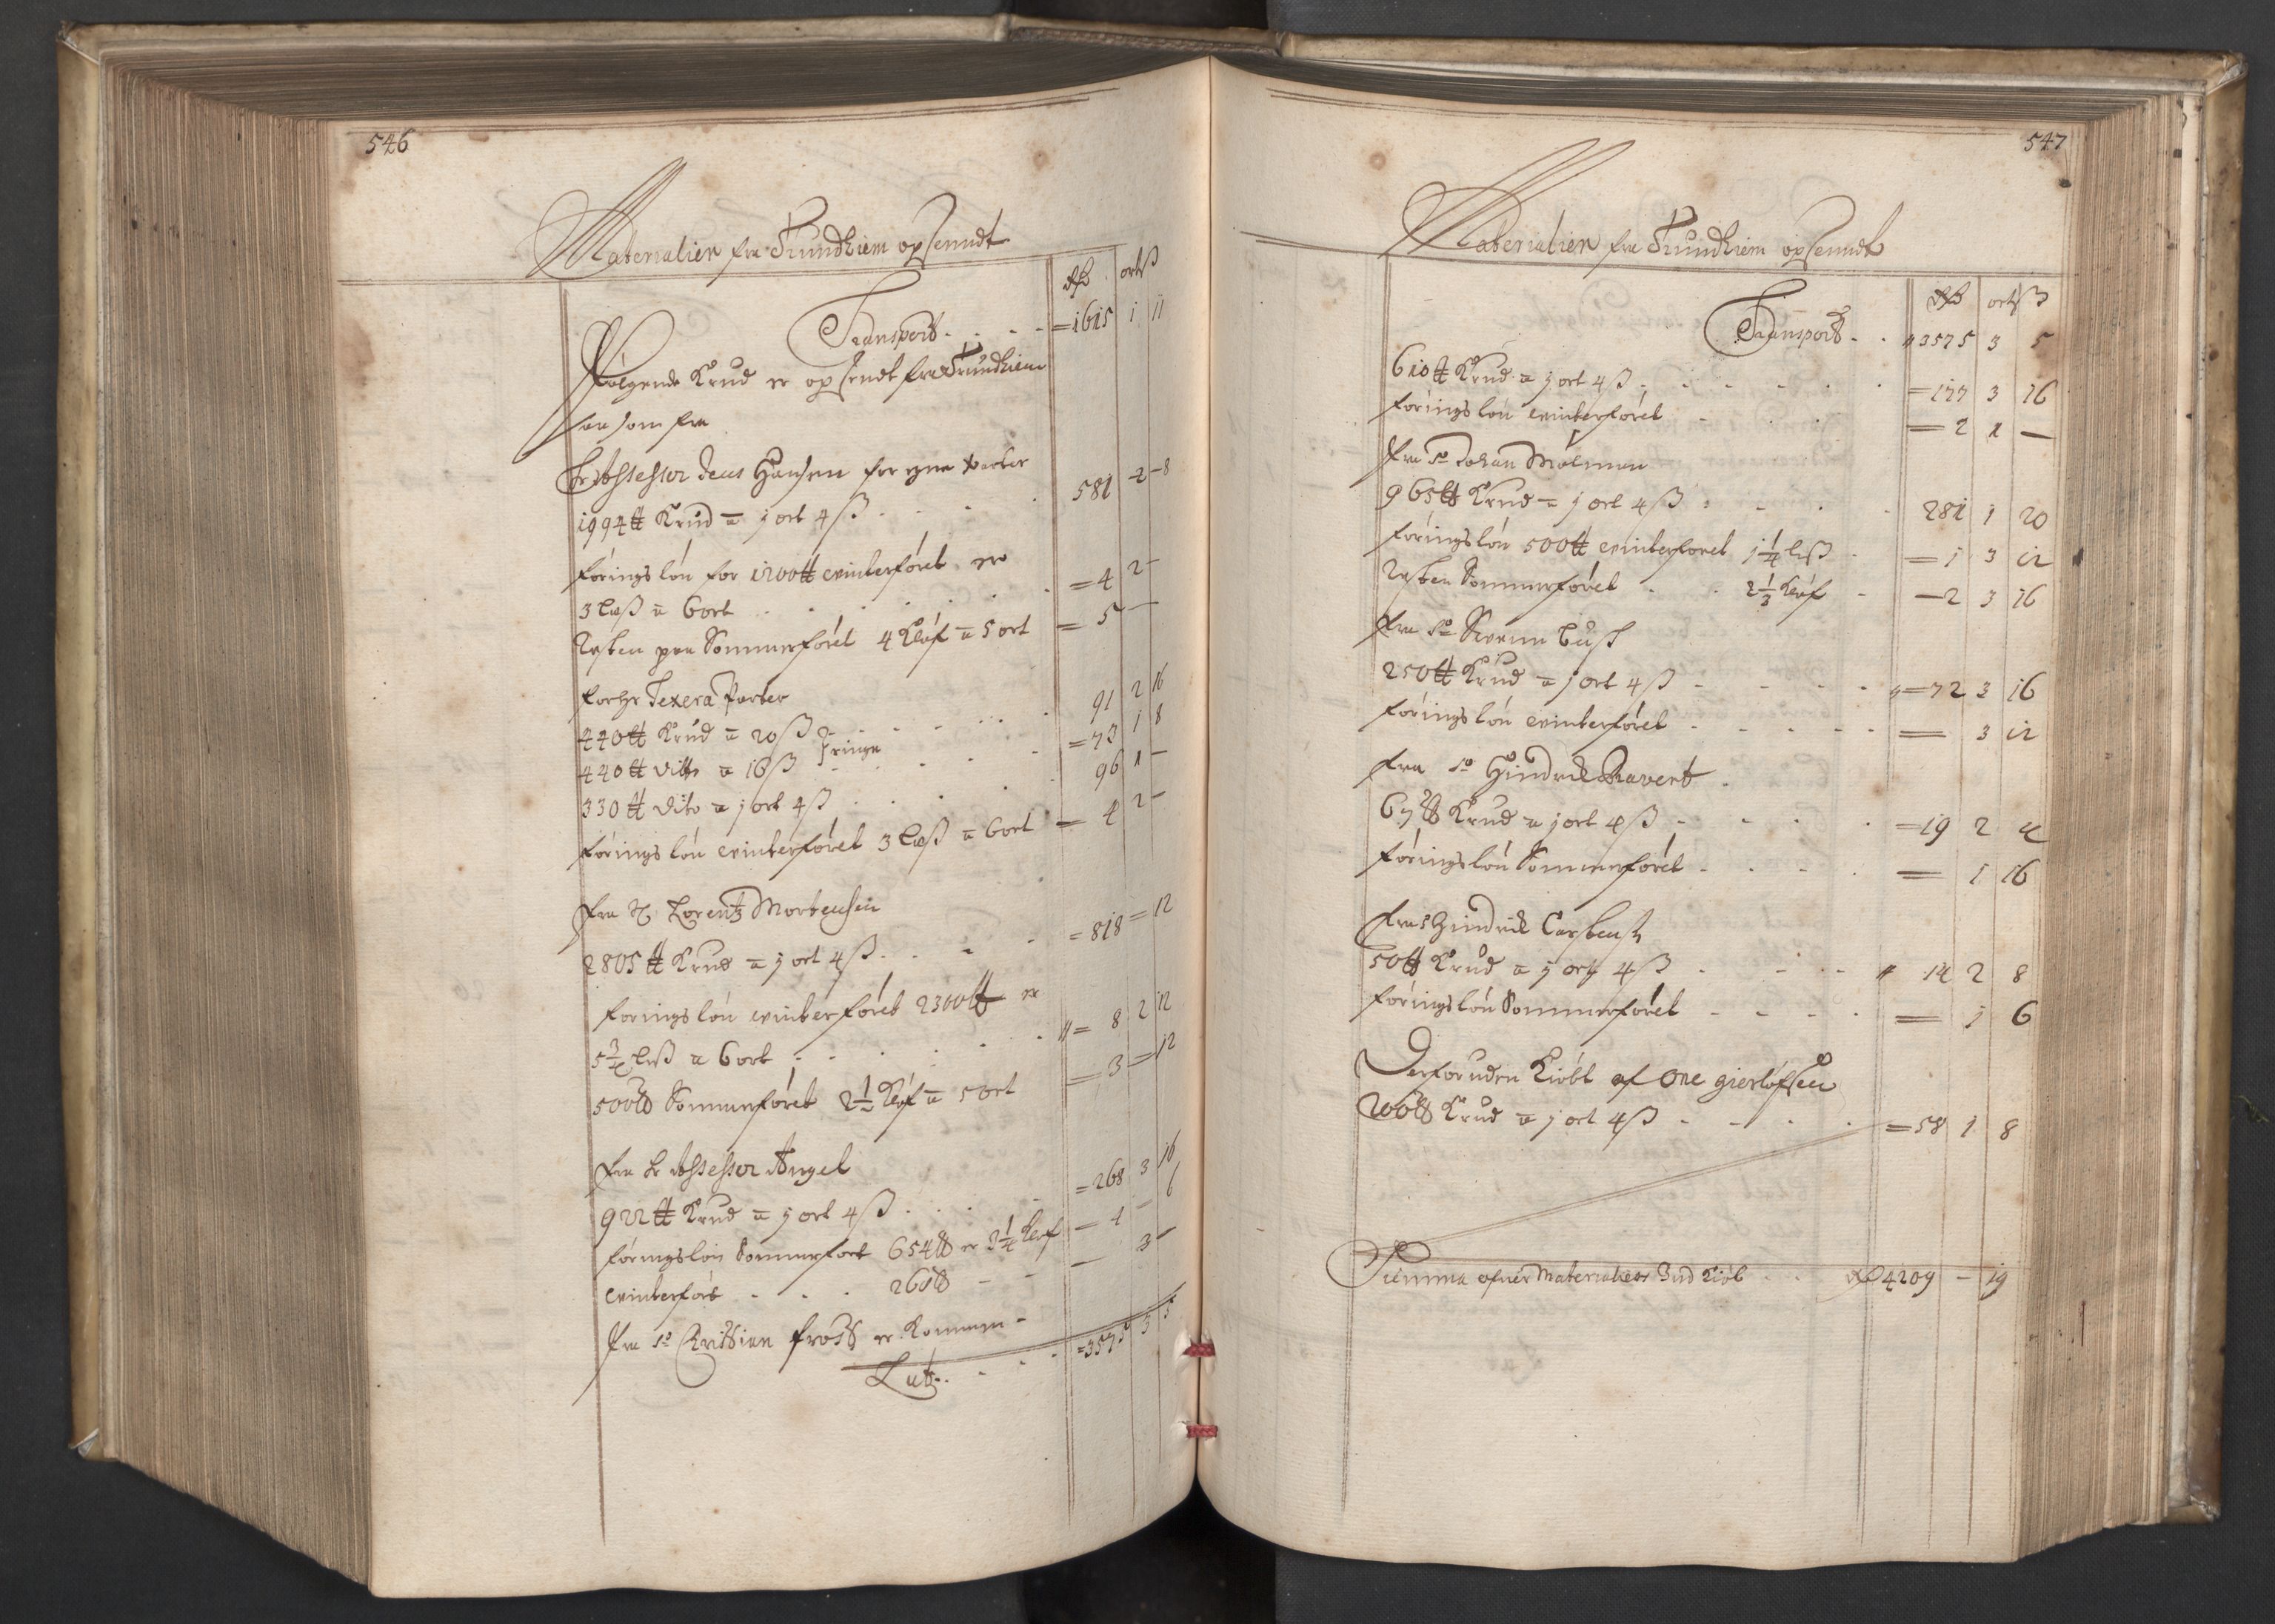 546
Materialier fra Trundhiem opsenndt
Rdr ort ß
Transport - - - = 1615 1 11
Følgende Krud er opsendt fra Trundhiem
saasom fra
Hr Assessor Jens Hansen for egne Parter
1994 ℔ Krud a 1 ort 4 ß - - - 581 - 2 - 8
föringslön for 1200 ℔ vinterföret er
3 Læß a 6 ort . . . . . = 4 2 -
Resten paa Sommerföret 4 Kløf a 5 ort = 5 -
for hr Texera Parter
440 ℔ Krud a 20 ß - - - 91 2 16
440 ℔ ditto a 16 ß ringe - - = 73 1 8
330 ℔ dito a 1 ort 4 ß . . . . 96 1 -
föringslön vinterföret 3 Læß a 6 ort = 4 2 -
Fra Lorentz Mortensen
2805 ℔ Krud a 1 ort 4 ß - - - = 818 = 12
föringslön vinterföret 2300 ℔ er
5 3/4 Læß a 6 ort - - - = 8 2 12
500 ℔ Sommerföret 2 1/2 Kløf a 5 ort = 3 = 12
Fra hr Assessor Angel
922 ℔ Krud a 1 ort 4 ß . . . = 268 3 16
föringslön Sommerfört 654 ℔ er 3 1/4 Kløf = 4 - 6
vinterfört - - - 268 ℔ - - - 3 -
Fra Sr Christian Frost er kommen -
Lat. - - - = 3575 3 5
547
Materialier fra Trundhiem opsenndt
Rdr ort ß
Transport - - 3575 3 5
610 ℔ Krud a 1 ort 4 ß - - - - - = 177 3 16
föringslön vinterföret - - - = 2 1 -
Fra Sr Johan Mölman
965 ℔ Krud a 1 ort 4 ß - - - - 281 1 20
föringslön 500 ℔ vinterföret 1 1/4 Læß - = 1 3 12
Resten Sommerföret - - 2 1/3 Kløf - - 2 3 16
Fra Sr Swenn Busk
250 ℔ Krud a 1 ort 4 ß - - - - = 72 3 16
föringslön vinterföret - - - - = 3 12
Fra Sr Hindrich Ravert -
67 ℔ Krud a 1 ort 4 ß - - - - = 19 2 4
föringslön Sommerföret - - - - = 1 16
Fra Hindrich Carstens
50 ℔ Krud a 1 ort 4 ß - - - 14 2 8
föringslön Sommerföret - - - - = 1 6
Derforuden Kiöbt af One
200 ℔ Krud a 1 ort 4 ß - - - - = 58 1 8
Summa Materialiers Ind Kiöb - - Rdr 4209 - 19